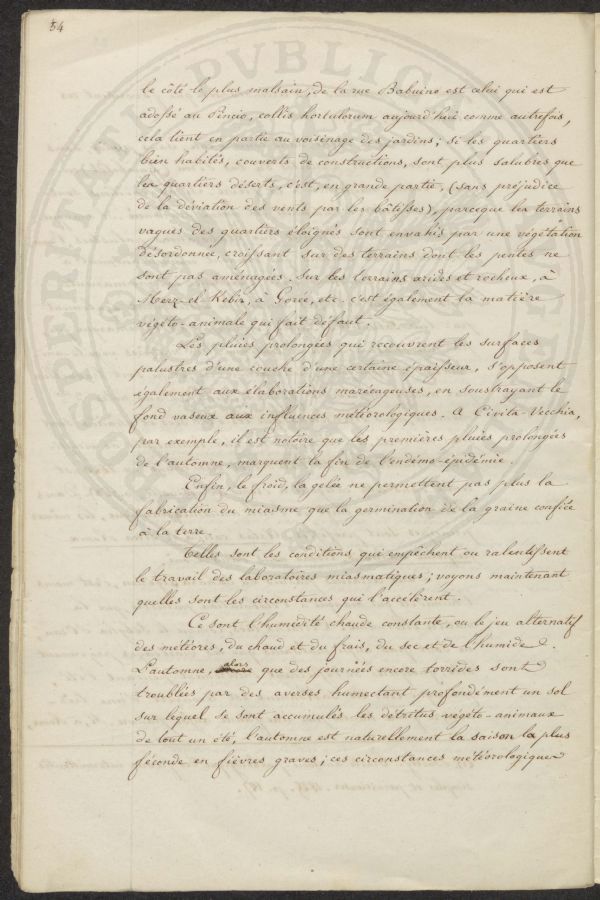 54
le côté le plus malsain, de la rue Babuino est celui qui est
adossé au Pincio, collis hortulorum aujourd'hui comme autrefois,
cela tient en partie au voisinage des jardins; si les quartiers
bien habités, couverts de constructions, sont plus salubres que
les quartiers déserts, c'est, en grande partie, (sans préjudice
de la déviation des vents par les bâtisses), parceque les terrains
vagues des quartiers éloignés sont envahis par une végétation
désordonnée, croissant sur des terrains dont les pentes ne
sont pas aménagées. Sur les terrains arides et rocheux, à
Merz-el-Kébir, à Gorée, etc. c'est également la matière
végéto-animale qui fait défaut.
Les pluies prolongées qui recouvrent les surfaces
palustres d'une couche d'une certaine épaisseur, s'opposent
également aux élaborations marécageuses, en soustrayant le
fond vaseux aux influences météorologiques. A Civita-Vecchia,
par exemple, il est notoire que les premières pluies prolongées
de l'automne, marquent la fin de l'endémo-épidémie.
Enfin, le froid, la gelée ne permettent pas plus la
fabrication du miasme que la germination de la graine confiée
à la terre.
Telles sont les conditions qui empêchent ou ralentissent
le travail des laboratoires miasmatiques; voyons maintenant
quelles sont les circonstances qui l'accélèrent.
Ce sont l'humidité chaude constante, ou le jeu alternatif
des météores, du chaud et du frais, du sec et de l'humide.
L'automne, alors que des journées encore torrides sont
troublées par des averses humectant profondément un sol
sur lequel se sont accumulés les détritus végéto-animaux
de tout un été, l'automne est naturellement la saison la plus
féconde en fièvres graves; ces circonstances météorologiques
PROSPERITATI PVBLICAE